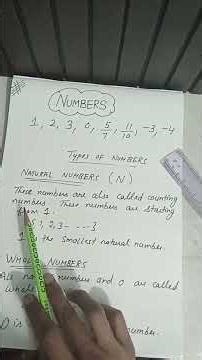 NUMBERS
1, 2, 3, 0, 5/7, 11/10, -3, -4
TYPES OF NUMBERS
NATURAL NUMBERS (N)
These numbers are also called counting
numbers. These numbers are starting
from 1.
2, 3- - - -}
1 the smallest natural number.
WHOLE NUMBERS
All numbers and 0 are called
whole
0 is number.